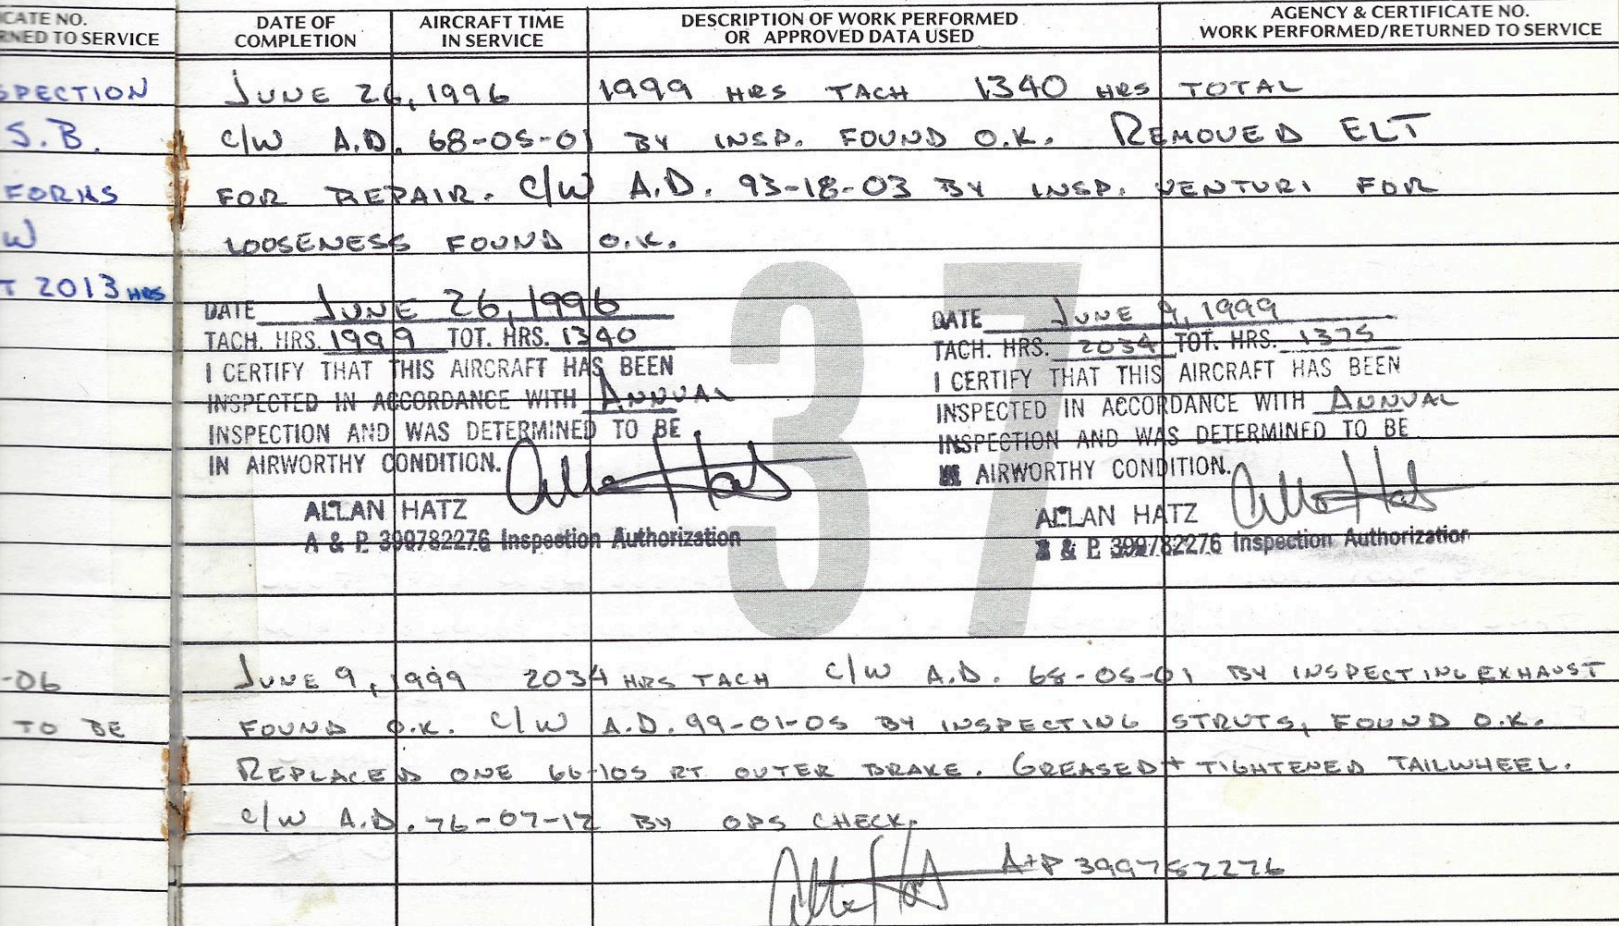 CATE NO.
RNED TO SERVICE
SPECTION
S.B.
FORMS
W
T 2013 HRS
-06
TO BE
DATE OF COMPLETION
AIRCRAFT TIME IN SERVICE
DESCRIPTION OF WORK PERFORMED OR APPROVED DATA USED
AGENCY & CERTIFICATE NO. WORK PERFORMED/RETURNED TO SERVICE
JUNE 26, 1996 1999 HRS TACH 1340 HRS TOTAL
C/W A.D. 68-05-01 BY INSP. FOUND O.K. REMOVED ELT
FOR REPAIR. C/W A.D. 93-18-03 BY INSP. VENTURI FOR
LOOSENESS FOUND O.K.
37
DATE JUNE 26, 1996
TACH. HRS. 1999 TOT. HRS. 1340
I CERTIFY THAT THIS AIRCRAFT HAS BEEN
INSPECTED IN ACCORDANCE WITH ANNUAL
INSPECTION AND WAS DETERMINED TO BE
IN AIRWORTHY CONDITION.
ALLAN HATZ
A & P 399782276 Inspection Authorization
DATE JUNE 9, 1999
TACH. HRS. 2034 TOT. HRS. 1375
I CERTIFY THAT THIS AIRCRAFT HAS BEEN
INSPECTED IN ACCORDANCE WITH ANNUAL
INSPECTION AND WAS DETERMINED TO BE
AIRWORTHY CONDITION.
ALLAN HATZ
& P 399782276 Inspection Authorization
JUNE 9, 1999 2034 HRS TACH C/W A.D. 68-05-01 BY INSPECTING EXHAUST
FOUND O.K. C/W A.D. 99-01-05 BY INSPECTING STRUTS, FOUND O.K.
REPLACED ONE 66-105 RT OUTER BRAKE. GREASED + TIGHTENED TAILWHEEL.
C/W A.D. 76-07-12 BY OPS CHECK.
A+P 399782276